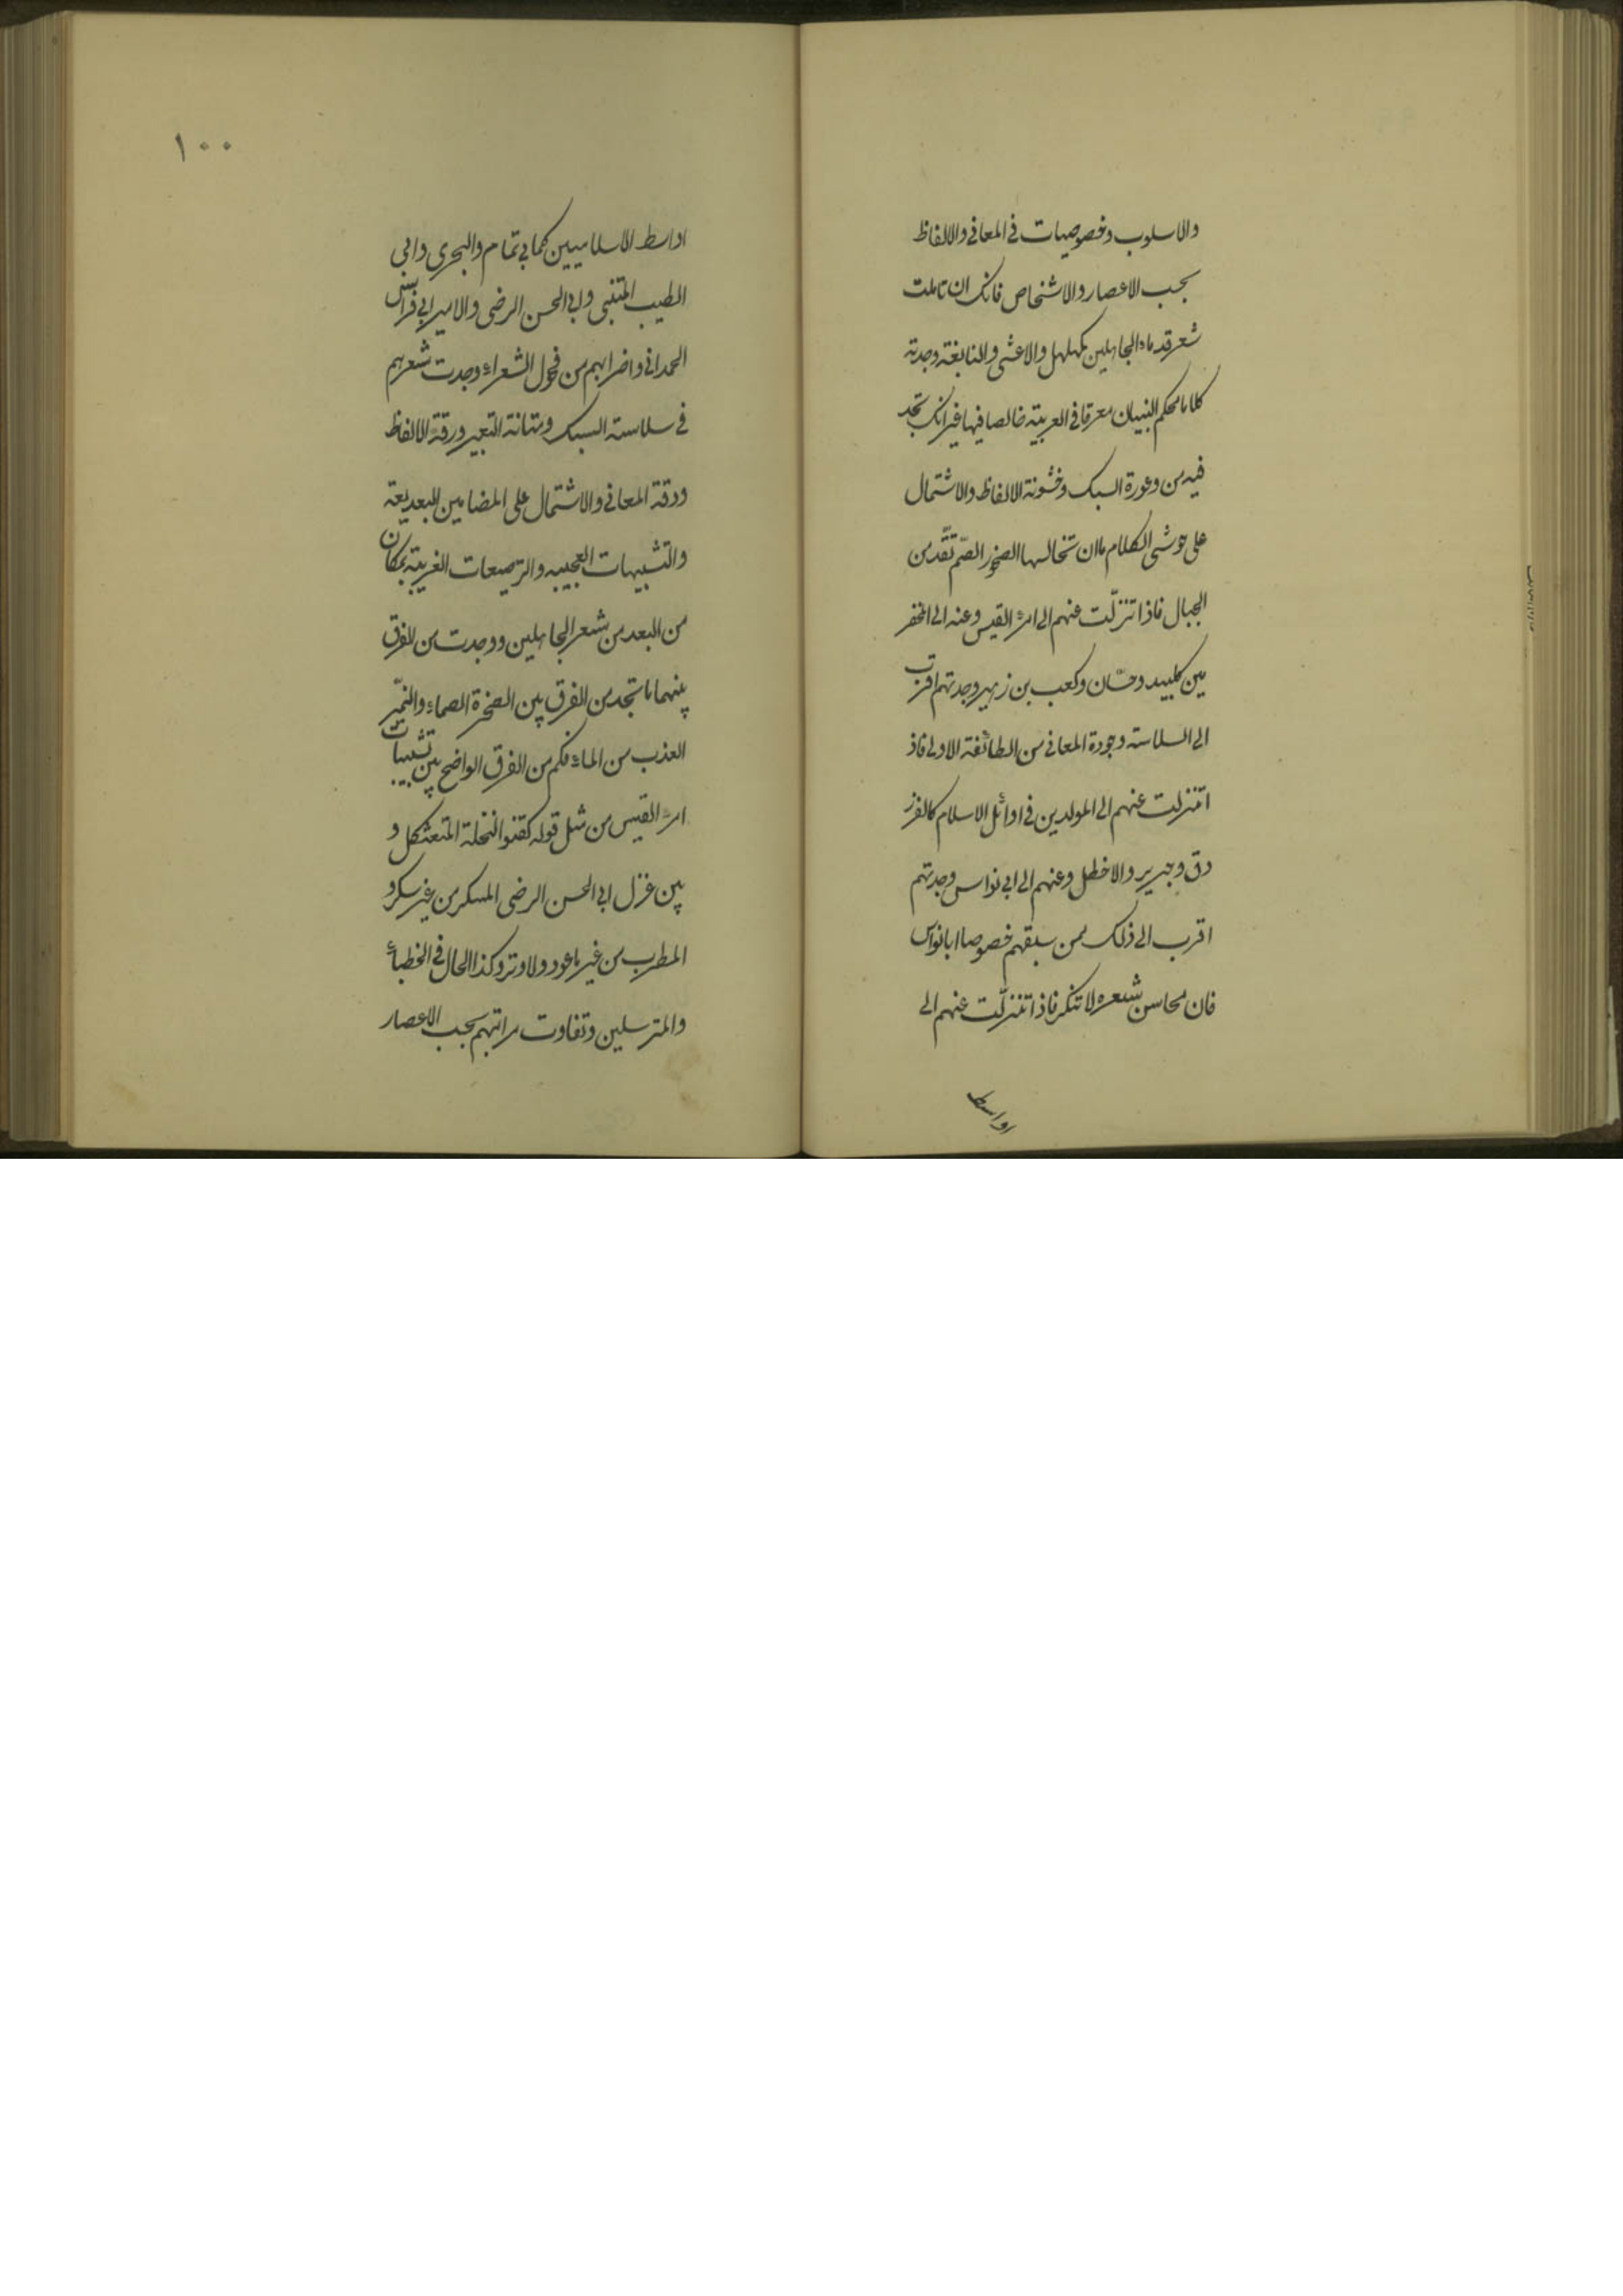 والاسلوب وخصوصيات في المعاني والالفاظ
بحسب الاعصار والاشخاص فانك ان تاملت
شعر قدماء الجاهلين كمهلهل والاعشى والنابغة وجدته
كلاما محكم البنيان معرقا في العربية خالصا فيها غير انك تجد
فيه من وعورة السبك وخشونة الالفاظ والاشتمال
على حوشى الكلام ما ان تخالسها الصخور الصّم تقّد من
الجبال فاذا تنزلّت عنهم الى امرء القيس وعنه الى المخضر
مين كلبيد وحسّان وكعب بن زهير وجدتهم اقرب
الى السلاسة وجودة المعاني من الطائفة الاولى فاذ
اتنزلت عنهم الى المولدين في اوائل الاسلام كالفرز
دق وجرير والاخطل وعنهم الى ابي نواس وجدتهم
اقرب الى ذلك ممن سبقهم خصوصا ابانواس
فان محاسن شعره لا تنكر فاذا تنزلّت عنهم الى
اواسط
١٠٠
اواسط الاسلاميين كابي تمّام والبحترى وابي
الطيب المتنبي وابي الحسن الرضى والامير ابي فراس
الحمداني واضرابهم من فحول الشعراء وجدت شعرهم
في سلاسة السبك ومتانة التعبير ورقة الالفاظ
ودقة المعاني والاشتمال على المضامين البديعة
والتشبيهات العجيبه والترصيعات الغريبة بمكان
من البعد من شعر الجاهلين ووجدت من الفرق
بينهما ما تجد من الفرق بين الصخرة الصماء والنمّير
العذب من الماء فكم من الفرق الواضح بين تشبيهات
امرء القيس من مثل قوله كقنو النخلة المتعثكل و
بين غزل ابي الحسن الرضى المسكر من غير سكر و
المطرب من غير ما عود ولا وتر وكذا الحال في الخطباء
والمترسلين وتفاوت مراتبهم بحسب الاعصار